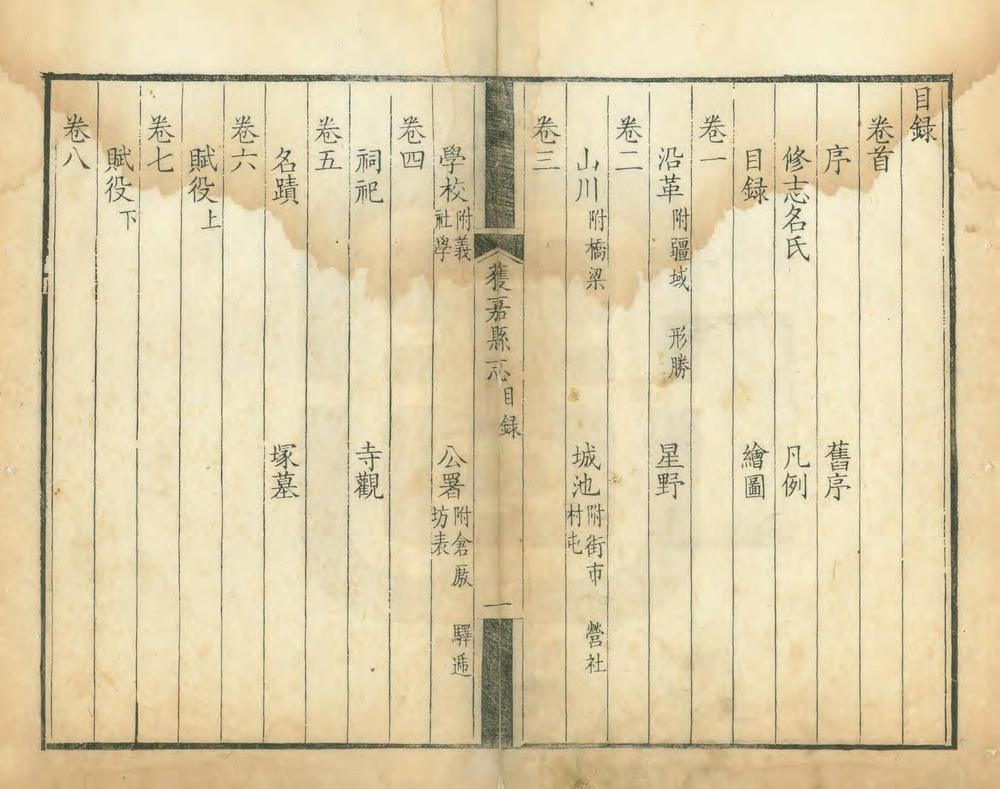 目録
卷首
序 舊序
修志名氏 凡例
目録 繪圖
卷一
沿革 附疆域 形勝 星野
卷二
山川 附橋梁 城池 附街市 營社 村屯
卷三
獲嘉縣志 目録 一
學校 附義社學 公署 附倉廒 驛遞 坊表
卷四
祠祀 寺觀
卷五
名蹟 塚墓
卷六
賦役上
卷七
賦役下
卷八